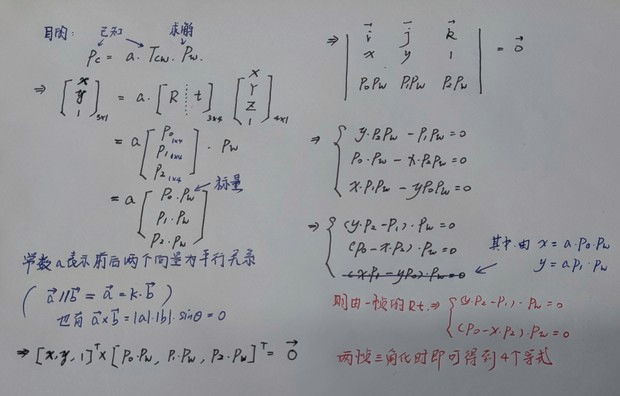 目的: 已知 求解
Pc = a · Tcw · Pw.
⇒ [x y 1]3x1 = a · [R ⋮ t]3x4 [X Y Z 1]4x1
= a [P0 1x4 P1 1x4 P2 1x4] · Pw
= a [P0·Pw P1·Pw P2·Pw] 标量
常数a表示前后两个向量为平行关系
( a⃗ // b⃗ = a⃗ = k·b⃗ )
也有 a⃗ × b⃗ = |a|·|b|·sinθ = 0
⇒ [x, y, 1]ᵀ × [P0·Pw, P1·Pw, P2·Pw]ᵀ = 0⃗
⇒ | i⃗ j⃗ k⃗ |
| x y 1 | = 0⃗
| P0Pw P1Pw P2Pw |
⇒ { y·P2Pw − P1Pw = 0
P0·Pw − x·P2Pw = 0
x·P1Pw − yP0Pw = 0
⇒ { (y·P2 − P1)·Pw = 0
(P0 − x·P2)·Pw = 0
(x·P1 − yP0)·Pw = 0
其中由 x = a·P0·Pw
y = aP1·Pw
则由一帧的Rt ⇒ { (y·P2 − P1)·Pw = 0
(P0 − x·P2)·Pw = 0
两帧三角化时即可得到4个等式